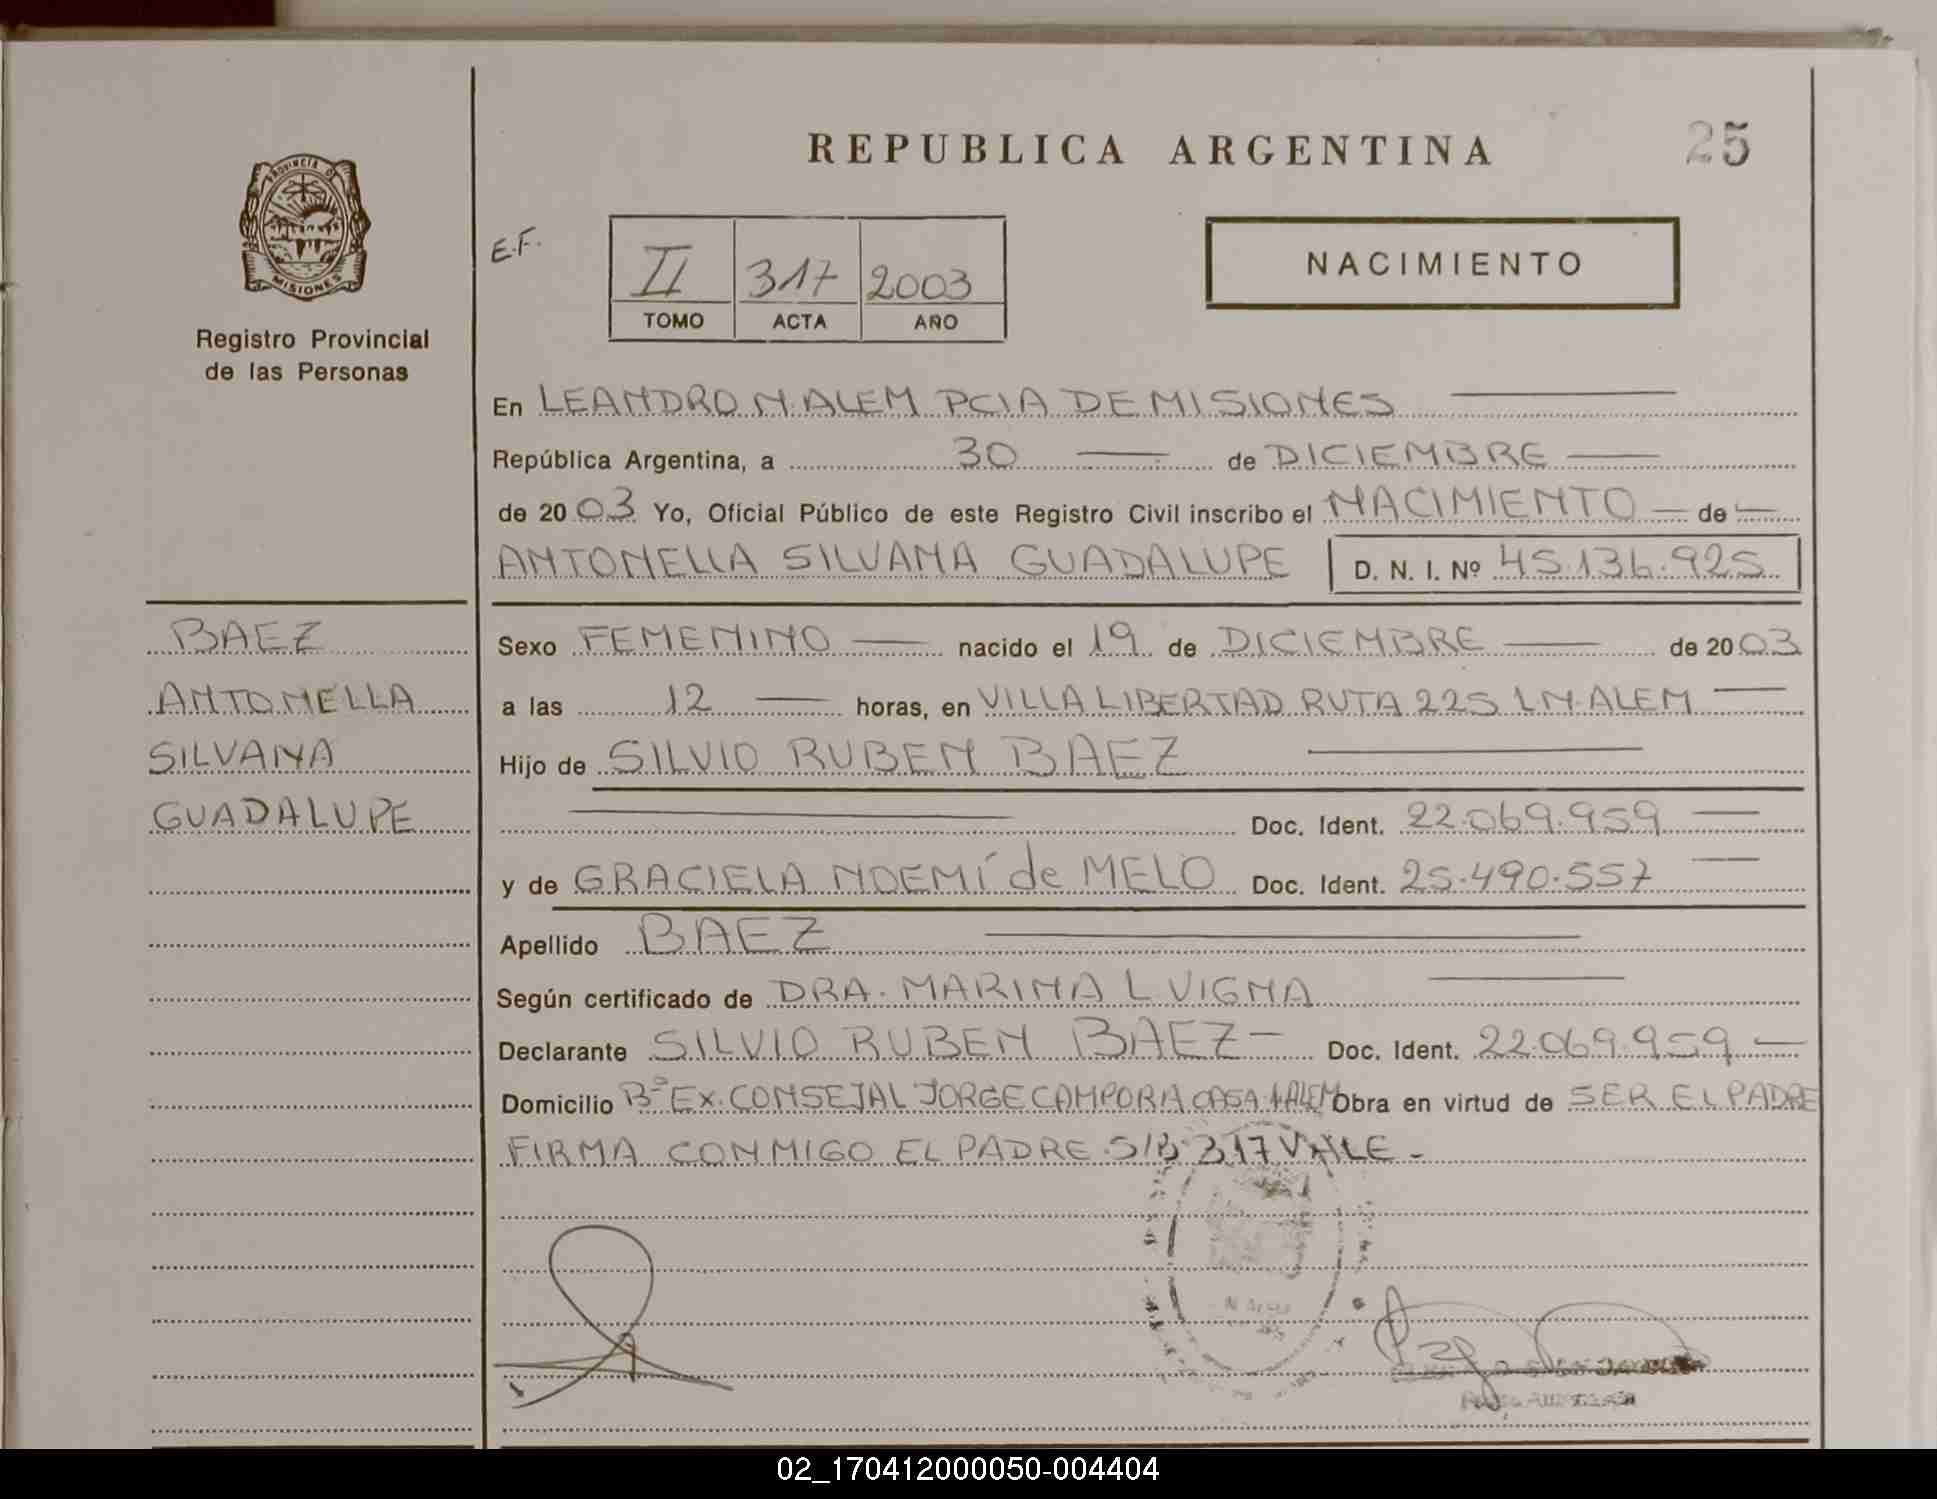 REPUBLICA ARGENTINA
25
PROVINCIA D
MISIONES
Registro Provincial
de las Personas
E.F.
II 317 2003
TOMO ACTA AÑO
NACIMIENTO
En LEANDRO N. ALEM PCIA DE MISIONES
República Argentina, a 30 de DICIEMBRE
de 2003 Yo, Oficial Público de este Registro Civil inscribo el NACIMIENTO de
ANTONELLA SILVANA GUADALUPE D. N. I. Nº 45.136.925
BAEZ
ANTONELLA
SILVANA
GUADALUPE
Sexo FEMENINO nacido el 19 de DICIEMBRE de 2003
a las 12 horas, en VILLA LIBERTAD RUTA 225 LN. ALEM
Hijo de SILVIO RUBEN BAEZ
Doc. Ident. 22.069.959
y de GRACIELA NOEMÍ de MELO Doc. Ident. 25.490.557
Apellido BAEZ
Según certificado de DRA. MARINA L VIGNA
Declarante SILVIO RUBEN BAEZ Doc. Ident. 22.069.959
Domicilio Bº EX. CONSEJAL JORGE CAMPORA CASA 1 ALEM Obra en virtud de SER EL PADRE
FIRMA CONMIGO EL PADRE S/B 317 VALE -
02_170412000050-004404